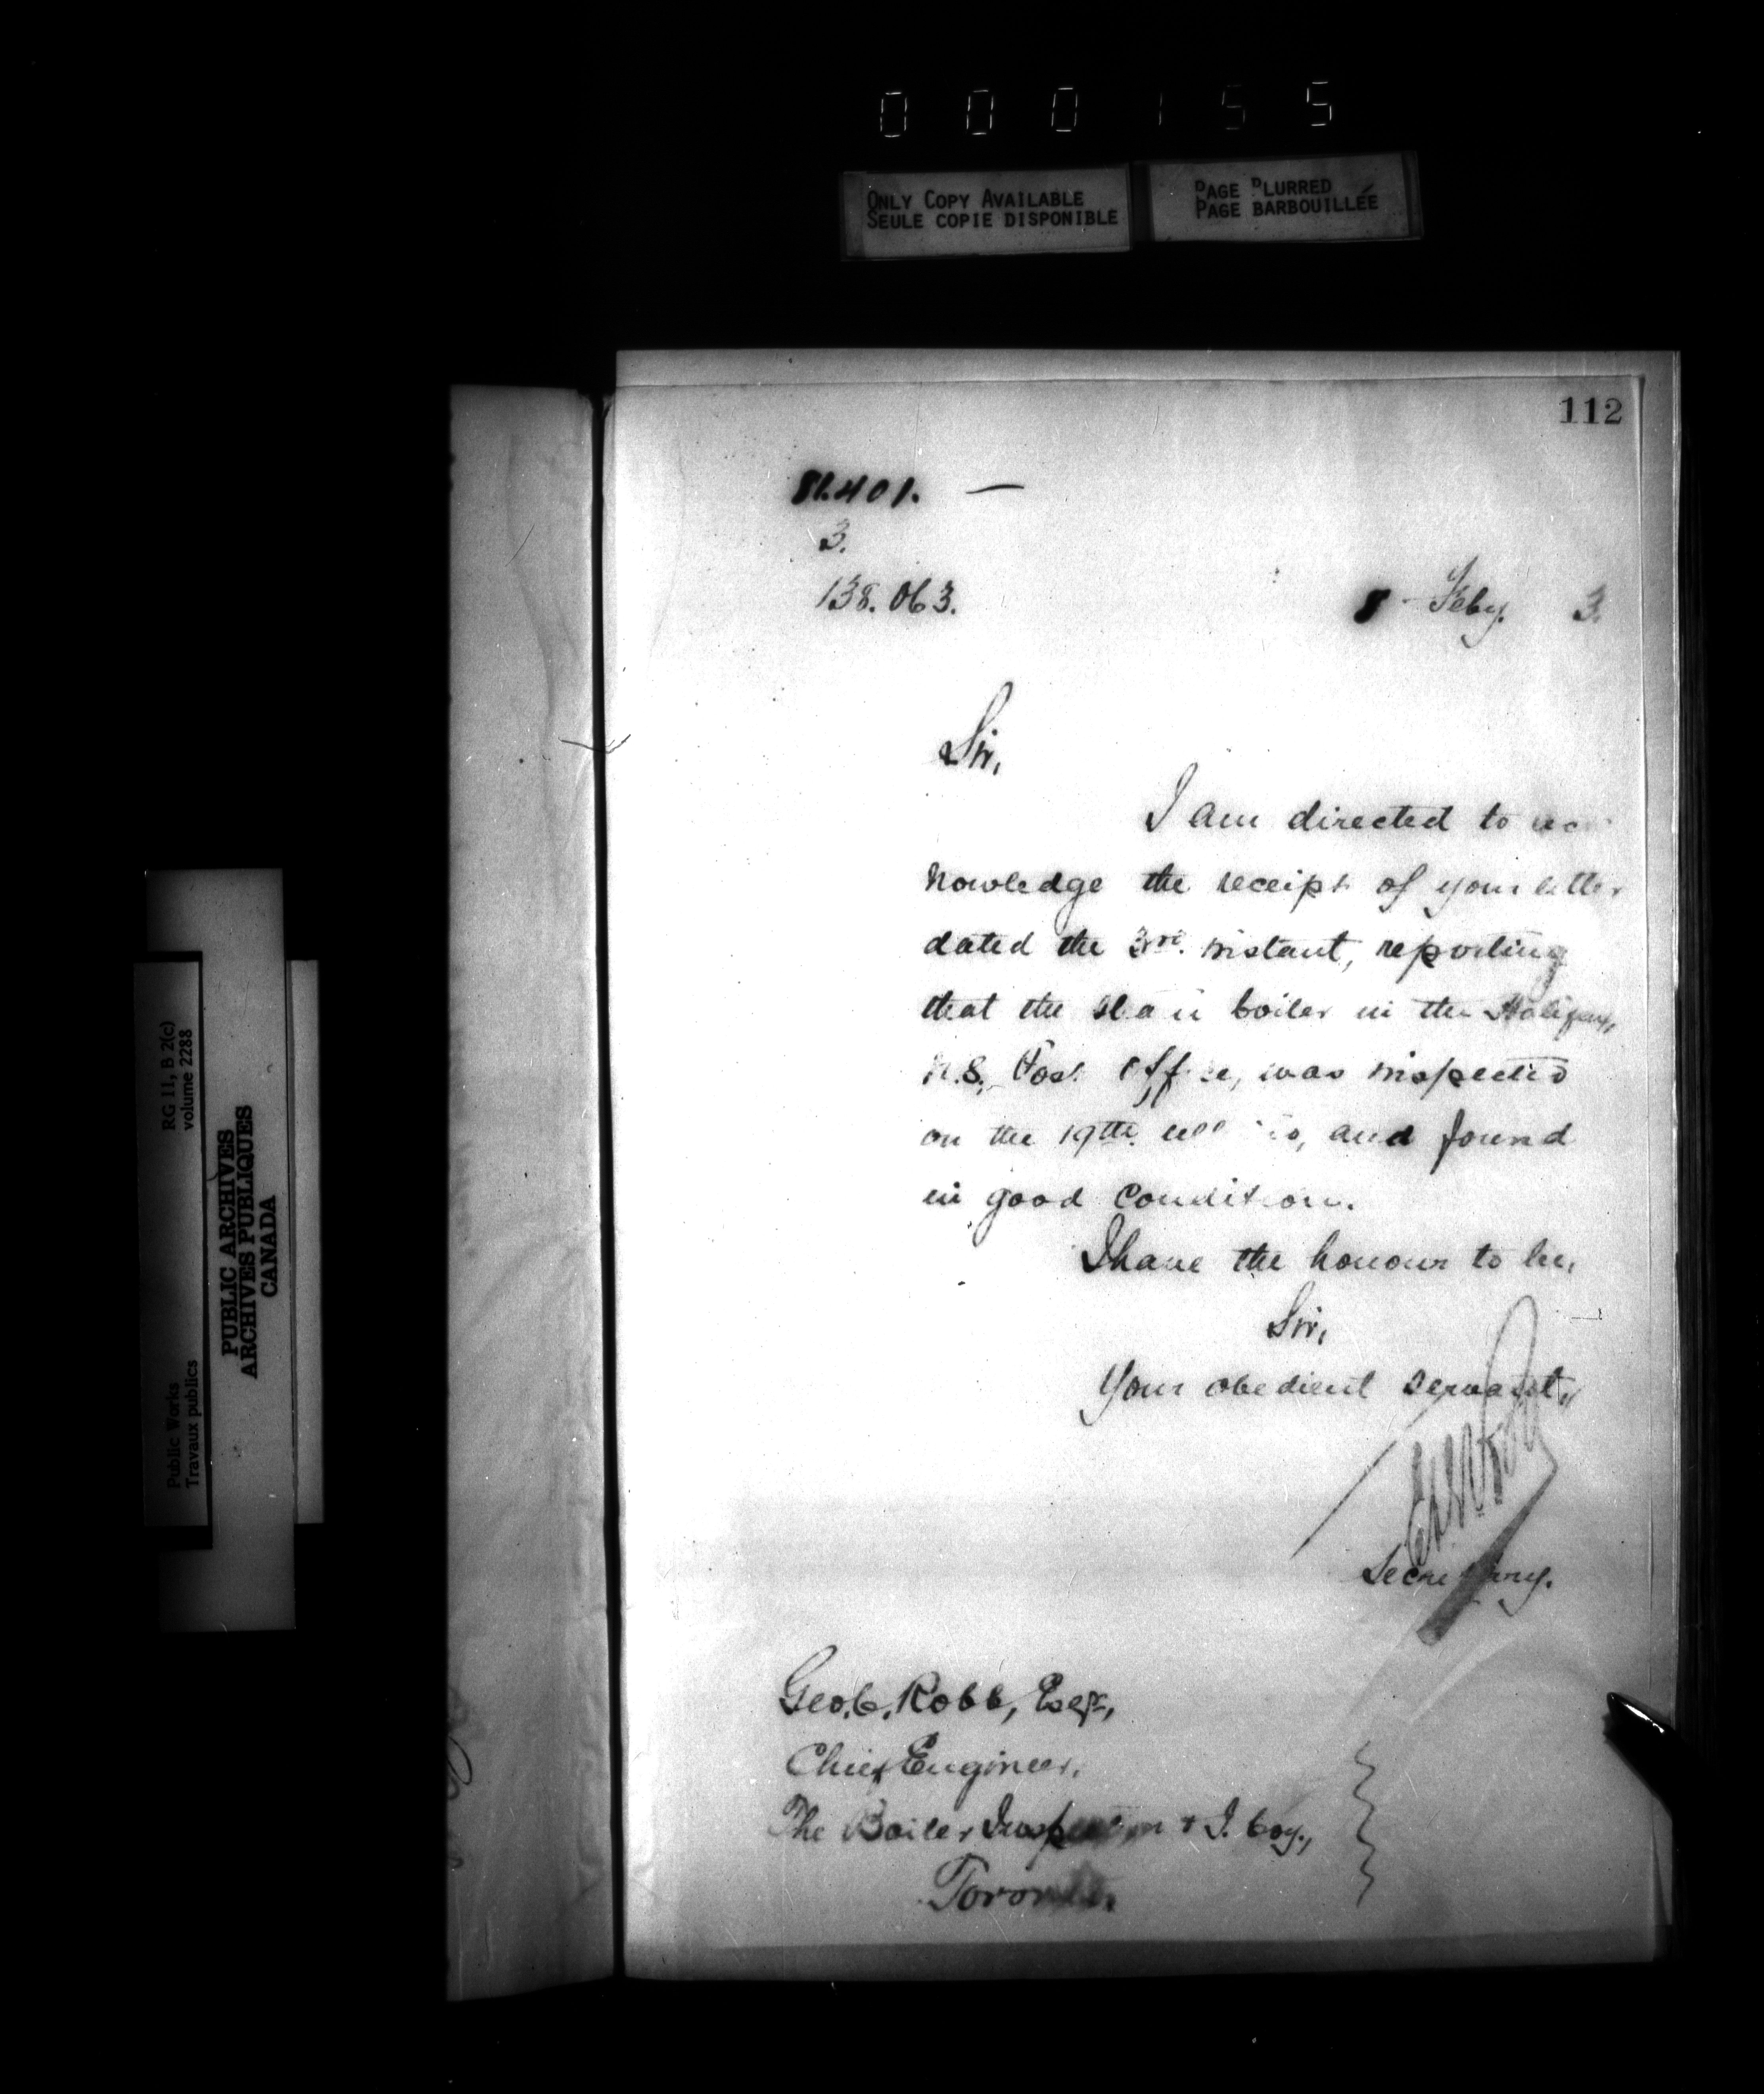 0 0 0 1 5 5
ONLY COPY AVAILABLE
SEULE COPIE DISPONIBLE
PAGE BLURRED
PAGE BARBOUILLÉE
112
81.401. —
3.
138.063.
8 - Feby. 3.
Sir,
I am directed to ac
knowledge the receipt of your letter
dated the 3rd. instant, reporting
that the steam boiler in the Halifax,
N.S., Post Office, was inspected
on the 19th. ultimo, and found
in good condition.
I have the honour to be,
Sir,
Your obedient servant,
Secretary.
Geo. C. Robb, Esqr.,
Chief Engineer,
The Boiler Inspection & I. Coy.,
Toronto.
RG 11, B 2(c)
volume 2288
Public Works
Travaux publics
PUBLIC ARCHIVES
ARCHIVES PUBLIQUES
CANADA